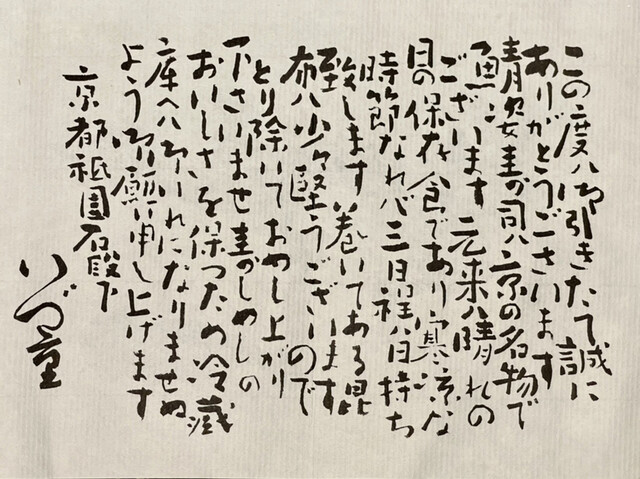 この度ハ御引きたて誠に
ありがとうございます
鯖姿寿司ハ京の名物で
ございます 元来ハ晴れの
日の保存食であり寒涼な
時節なれバ三日程ハ日持ち
致します 巻いてある昆
布ハ少々堅うございますので
とり除いておめし上がり
下さいませ 寿しめしの
おいしさを保つため冷蔵
庫へハ御いれになりませぬ
よう御願い申し上げます
京都祇園石段下
いづ重